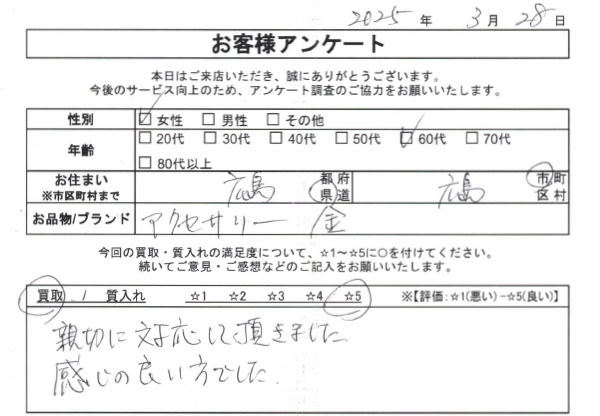 2025 年 3 月 28 日
お客様アンケート
本日はご来店いただき、誠にありがとうございます。
今後のサービス向上のため、アンケート調査のご協力をお願いいたします。
性別 ☑ 女性 □ 男性 □ その他
年齢 □ 20代 □ 30代 □ 40代 □ 50代 ☑ 60代 □ 70代
□ 80代以上
お住まい
※市区町村まで 広島 都府県道 広島 市町区村
お品物/ブランド アクセサリー 金
今回の買取・質入れの満足度について、☆1～☆5に○を付けてください。
続いてご意見・ご感想などのご記入をお願いいたします。
買取 / 質入れ ☆1 ☆2 ☆3 ☆4 ☆5 ※【評価:☆1(悪い)-☆5(良い)】
親切に対応して頂きました
感じの良い方でした.